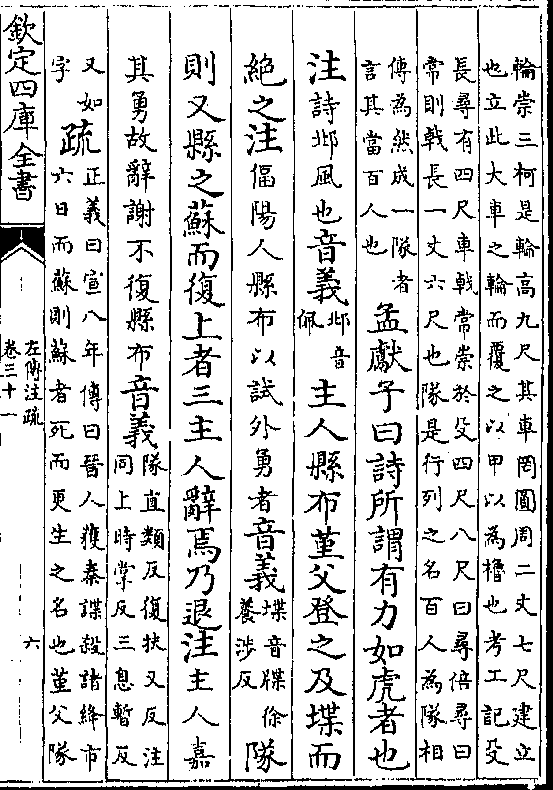 輪崇三柯是輪高九尺其車罔圓周二丈七尺建立
也立此大車之輪而覆之以甲以為櫓也考工記殳
長尋有四尺車戟常崇於殳四尺八尺曰尋倍尋曰
常則戟長一丈六尺也隊是行列之名百人為隊相
傳為然成一隊者
言其當百人也
孟獻子曰詩所謂有力如虎者也
注詩邶風也音義
邶音
佩
主人縣布堇父登之及堞而
絕之注
偪陽人縣布以試外勇者音義
堞音牒徐
養涉反
隊
則又縣之蘇而復上者三主人辭焉乃退注主人嘉
其勇故辭謝不復縣布音義
隊直類反復扶又反注
同上時掌反三息暫反
又如
字
疏
正義曰宣八年傳曰晉人獲秦諜殺諸絳市
六日而蘇則蘇者死而更生之名也堇父隊
欽定四庫全書
左傳注疏
卷三十一
六